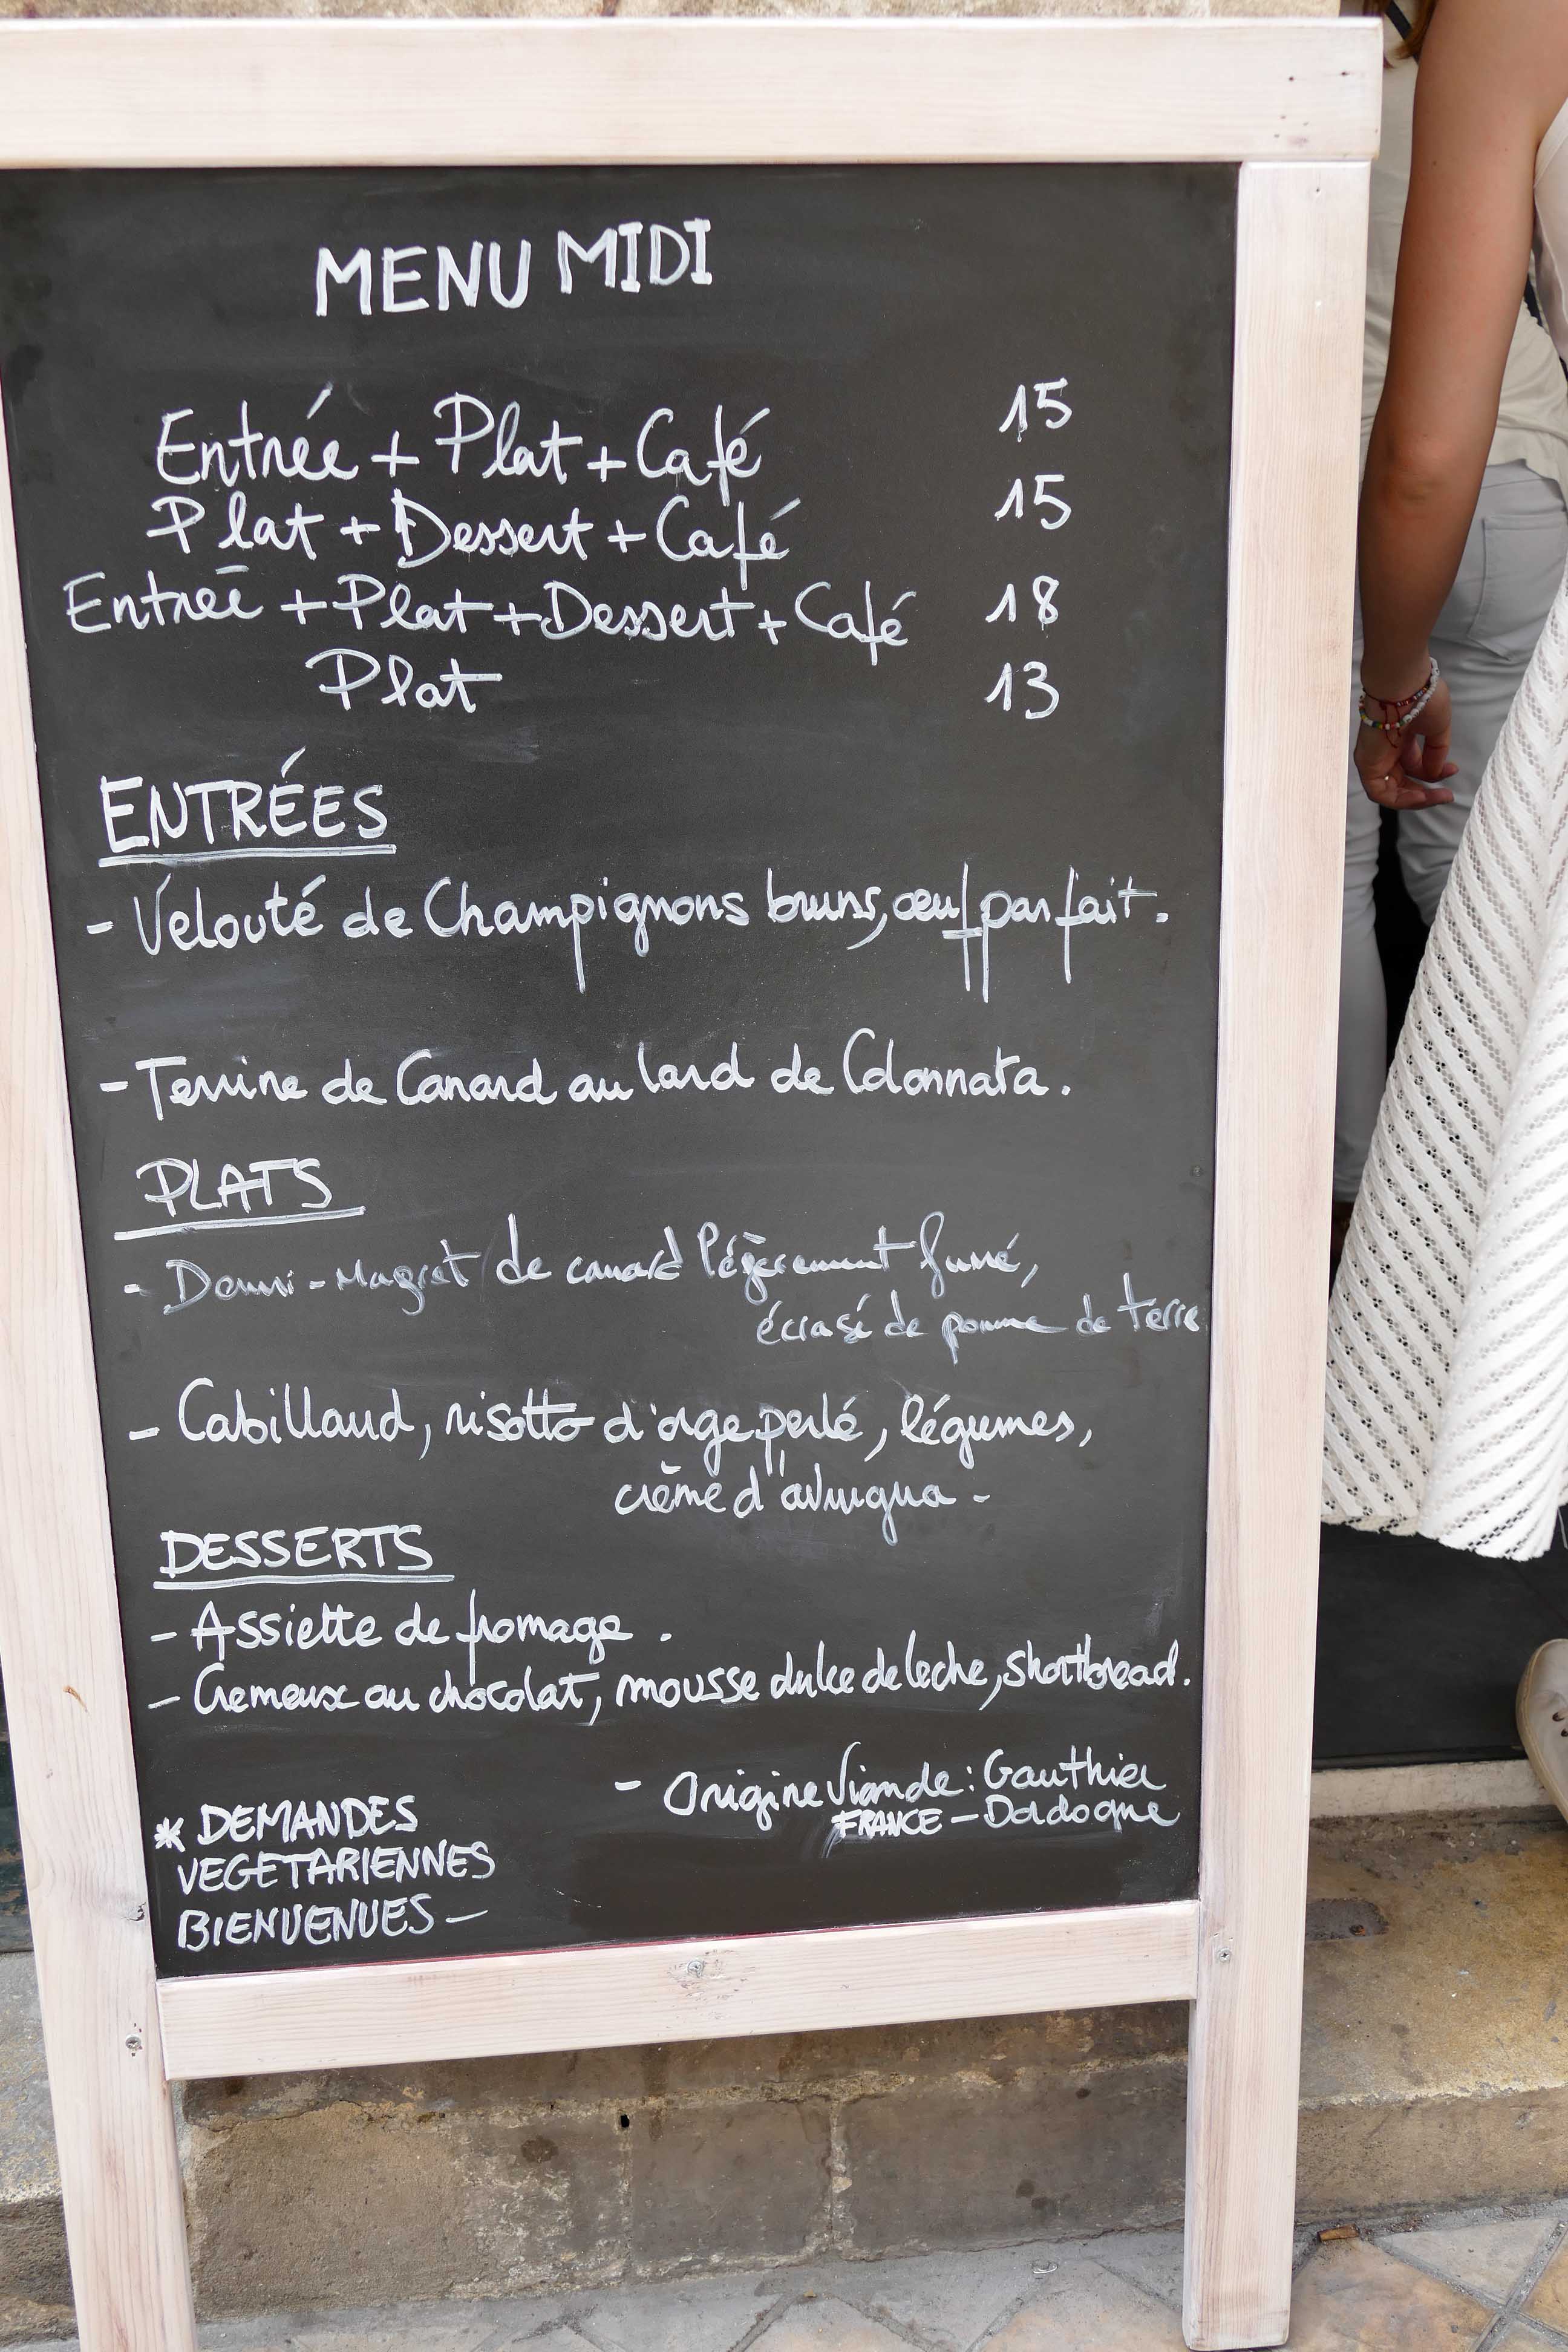 MENU MIDI
Entrée + Plat + Café 15
Plat + Dessert + Café 15
Entrée + Plat + Dessert + Café 18
Plat 13
ENTRÉES
- Velouté de Champignons bruns, œuf parfait.
- Terrine de Canard au lard de Colonnata.
PLATS
- Demi-Magret de canard légèrement fumé,
écrasé de pomme de terre
- Cabillaud, risotto d'orge perlé, légumes,
crème d'
DESSERTS
- Assiette de fromage.
- Cremeux au chocolat, mousse dulce de leche, shortbread.
- Origine Viande: Gauthier
FRANCE - Dordogne
* DEMANDES
VEGETARIENNES
BIENVENUES -